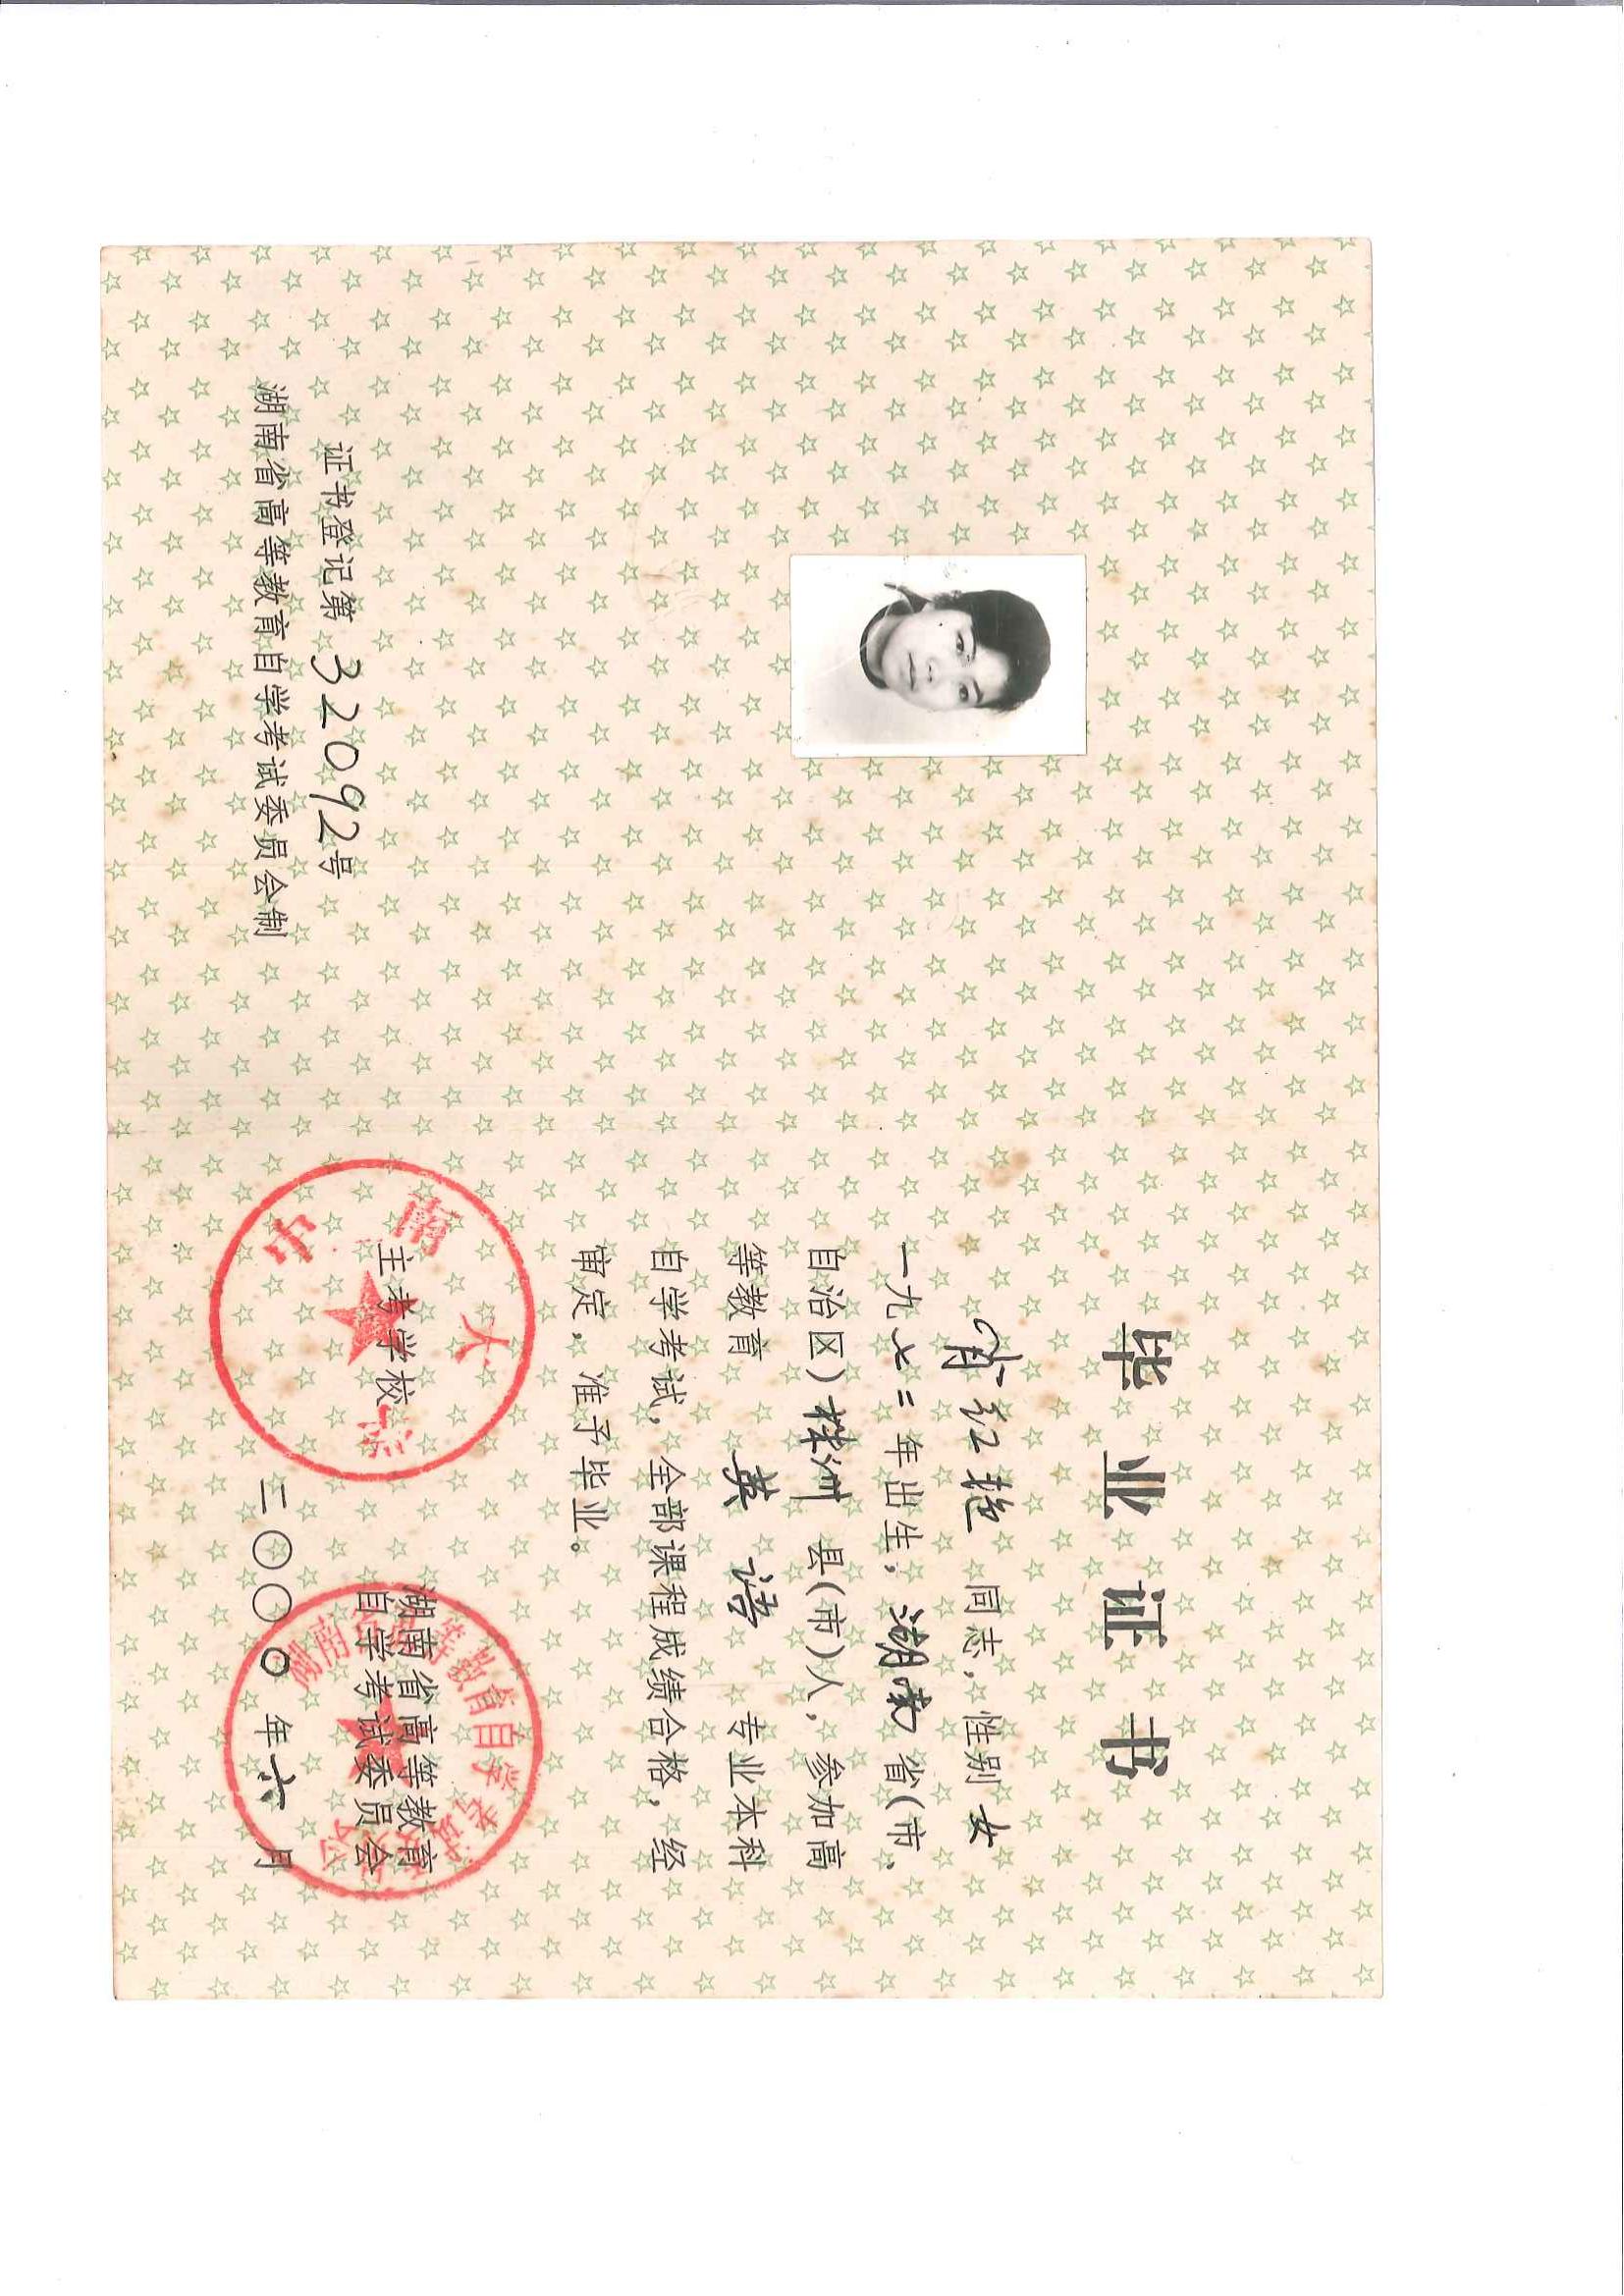 证书登记第 32092号
湖南省高等教育自学考试委员会制
毕业证书
肖红艳 同志,性别 女
一九七二年出生,湖南省(市、
自治区)株洲 县(市)人,参加高
等教育 英语 专业本科
自学考试,全部课程成绩合格,经
审定,准予毕业。
主考学校
中南大学
湖南省高等教育
自学考试委员会
湖南省高等教育自学考试委员会
二〇〇〇年六月